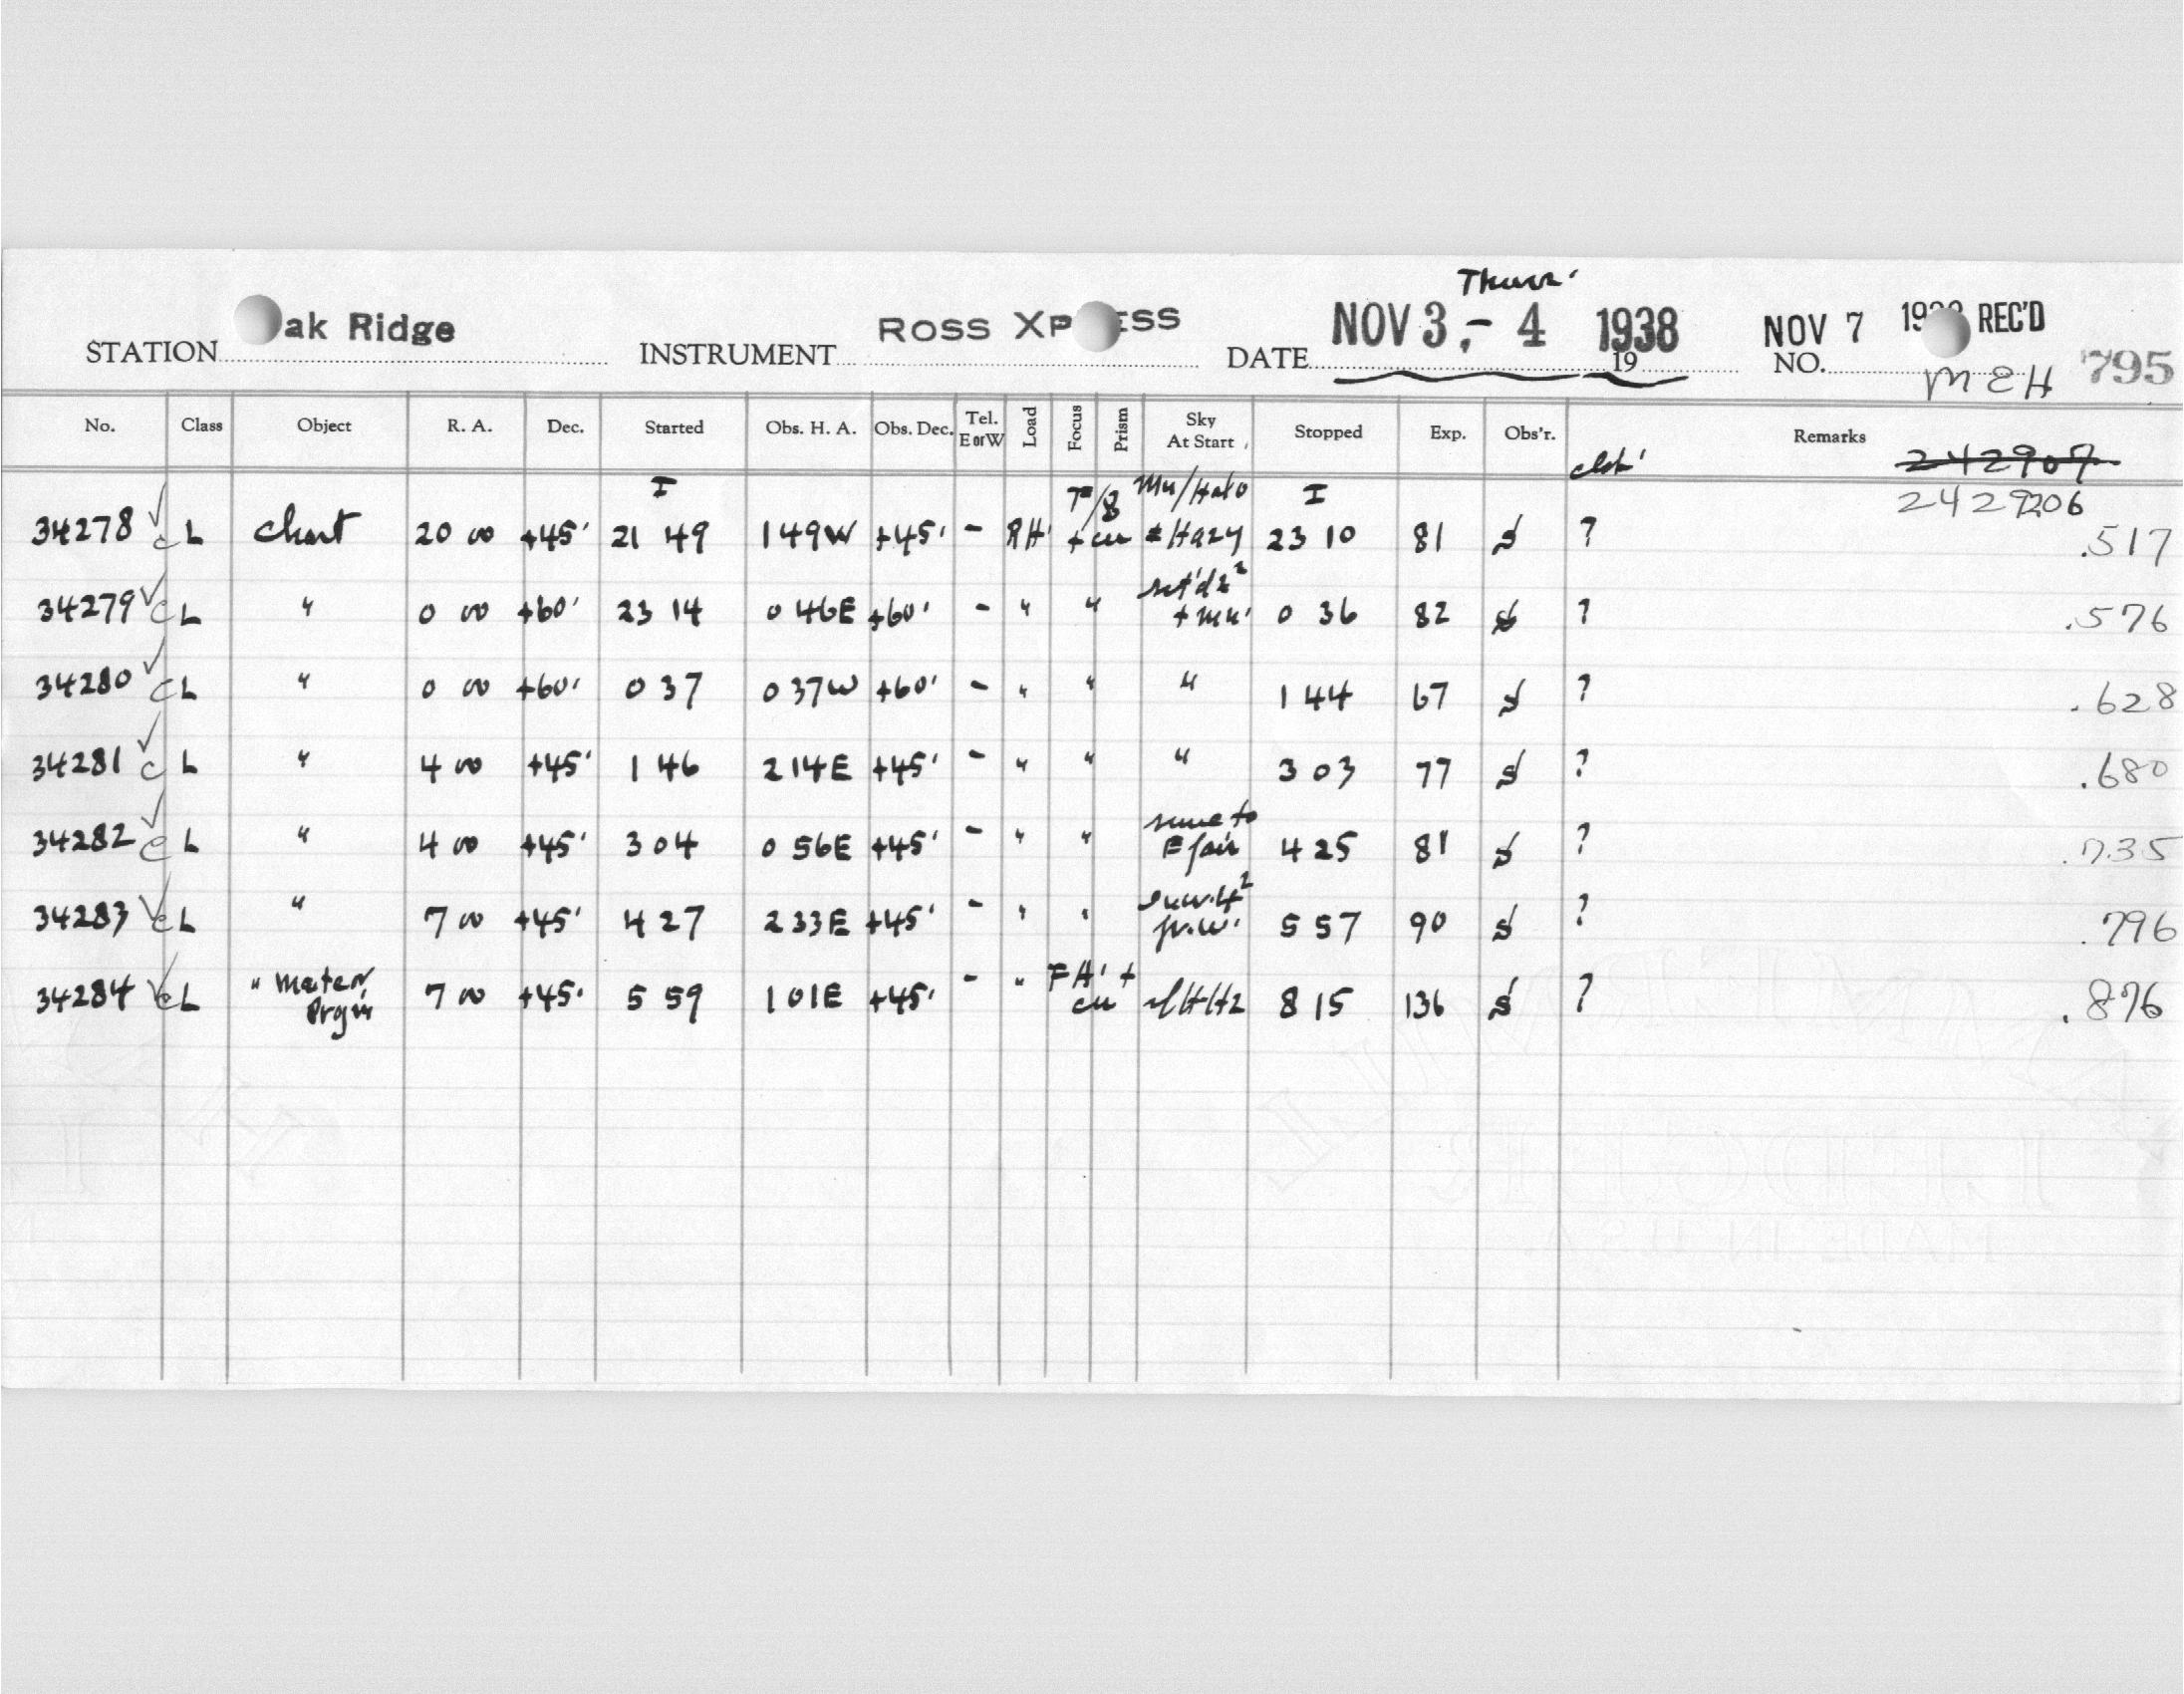 Thurs'
STATION ak Ridge INSTRUMENT ROSS XP ESS DATE NOV 3,- 4 1938 19 NOV 7 19 REC'D NO. 795
MEH
No. Class Object R. A. Dec. Started Obs. H. A. Obs. Dec. Tel. E or W Load Focus Prism Sky At Start Stopped Exp. Obs'r. Remarks
242907
I Mn/Halo I 2429206
34278 ✓ c L Chart 20 00 +45' 21 49 1 49W +45' - RH' F/8 + cu Hazy 23 10 81 S ? .517
34279 ✓ c L " 0 00 +60' 23 14 0 46E +60' - " " + mn' 0 36 82 S ? .576
34280 ✓ c L " 0 00 +60' 0 37 0 37W +60' - " " " 1 44 67 S ? .628
34281 ✓ c L " 4 00 +45' 1 46 2 14E +45' - " " " 3 03 77 S ? .680
34282 ✓ c L " 4 00 +45' 3 04 0 56E +45' - " " same to E fair 4 25 81 S ? .735
34283 ✓ c L " 7 00 +45' 4 27 2 33E +45' - " " 5 57 90 S ? .796
34284 ✓ c L " Meteor Prgm 7 00 +45' 5 59 1 01E +45' - " FH' + cu 8 15 136 S ? .876